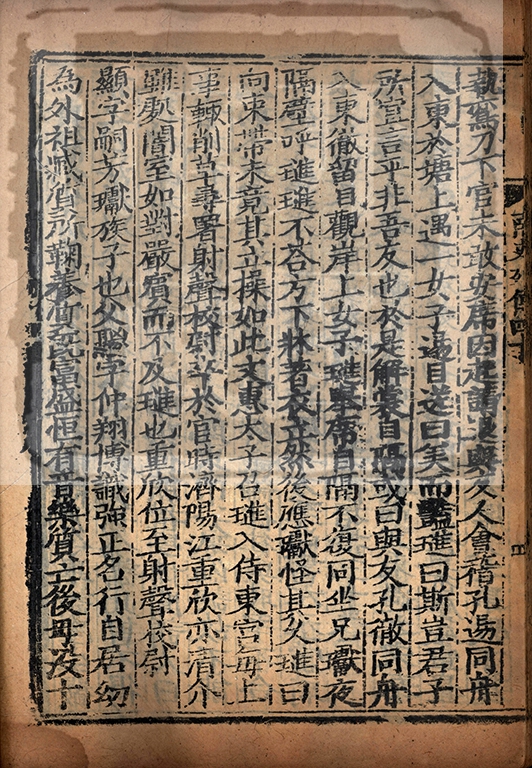 執鸞刀下官未敢安席因起請退與友人會稽孔逷同舟
入東於塘上遇一女子逷目送曰美而豔璡曰斯豈君子
所宜言乎非吾友也於是解裳自隔或曰與友孔徹同舟
入東徹留目觀岸上女子璡舉席自隔不復同坐兄瓛夜
隔壁呼璡璡不荅方下牀著衣立然後應瓛怪其久璡曰
向束帶未竟其立操如此文惠太子召璡入侍東宮每上
事輒削草尋署射聲校尉卒於官時濟陽江重欣亦清介
雖處闇室如對嚴賓而不及璡也重欣位至射聲校尉
顯字嗣芳瓛族子也父騣字仲翔博識強正名行自居幼
為外祖臧質所鞠養質既富盛恒有音樂質亡後母沒十